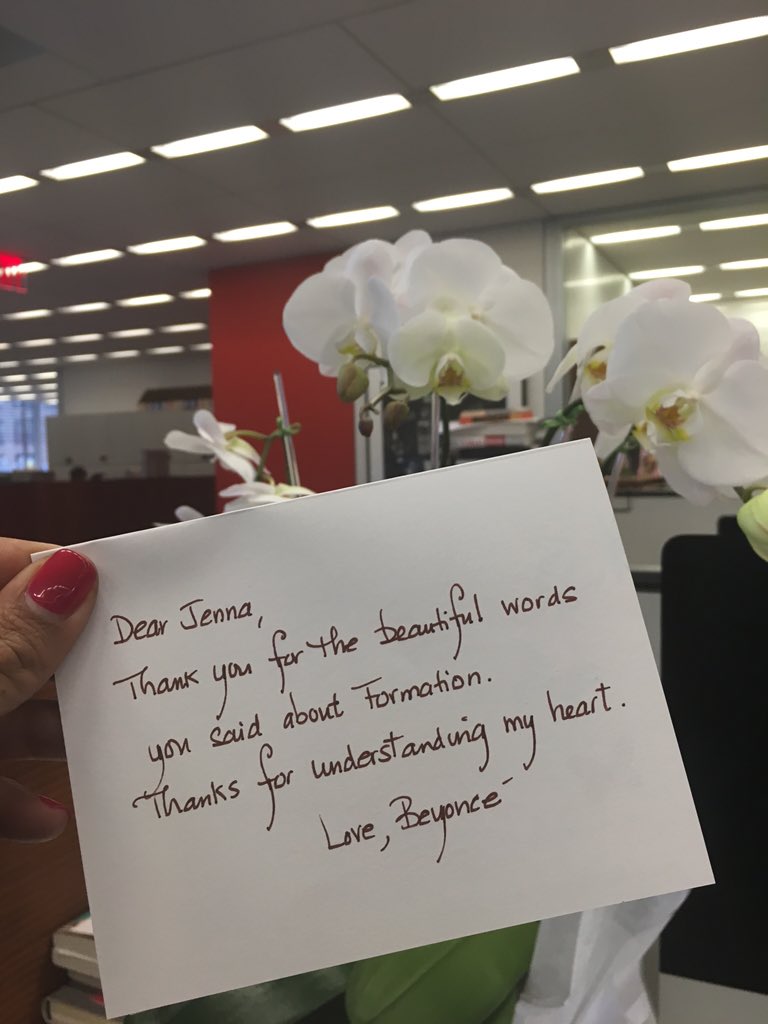 Dear Jenna,
Thank you for the beautiful words
you said about Formation.
Thanks for understanding my heart.
Love, Beyoncé